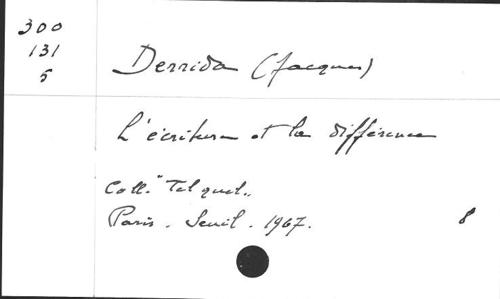 300
131
5
Derrida (Jacques)
L'écriture et la différence
Coll. "Tel quel"
Paris. Seuil. 1967. 8